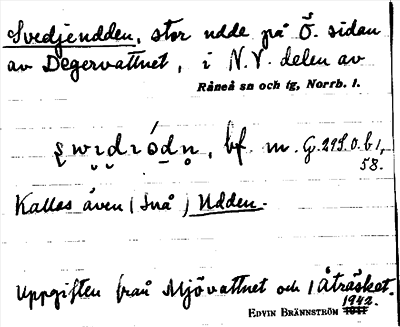 Svedjeudden, stor udde på Ö. sidan
av Degervattnet, i N.V. delen av
Råneå sn och tg, Norrb. l.
bf. m. G. 295. O. b 1,
58.
Kallas även (Små) Udden.
Uppgiften från Mjövattnet och (Åträsket.
1942.
EDVIN BRÄNNSTRÖM 1941